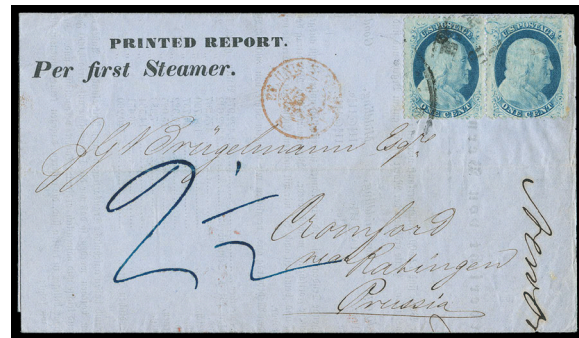 PRINTED REPORT.
Per first Steamer.
U.S. POSTAGE U.S. POSTAGE
ONE CENT ONE CENT
J G Brügelmann Esqr
2 1/2
Cromford
near Ratingen
Prussia